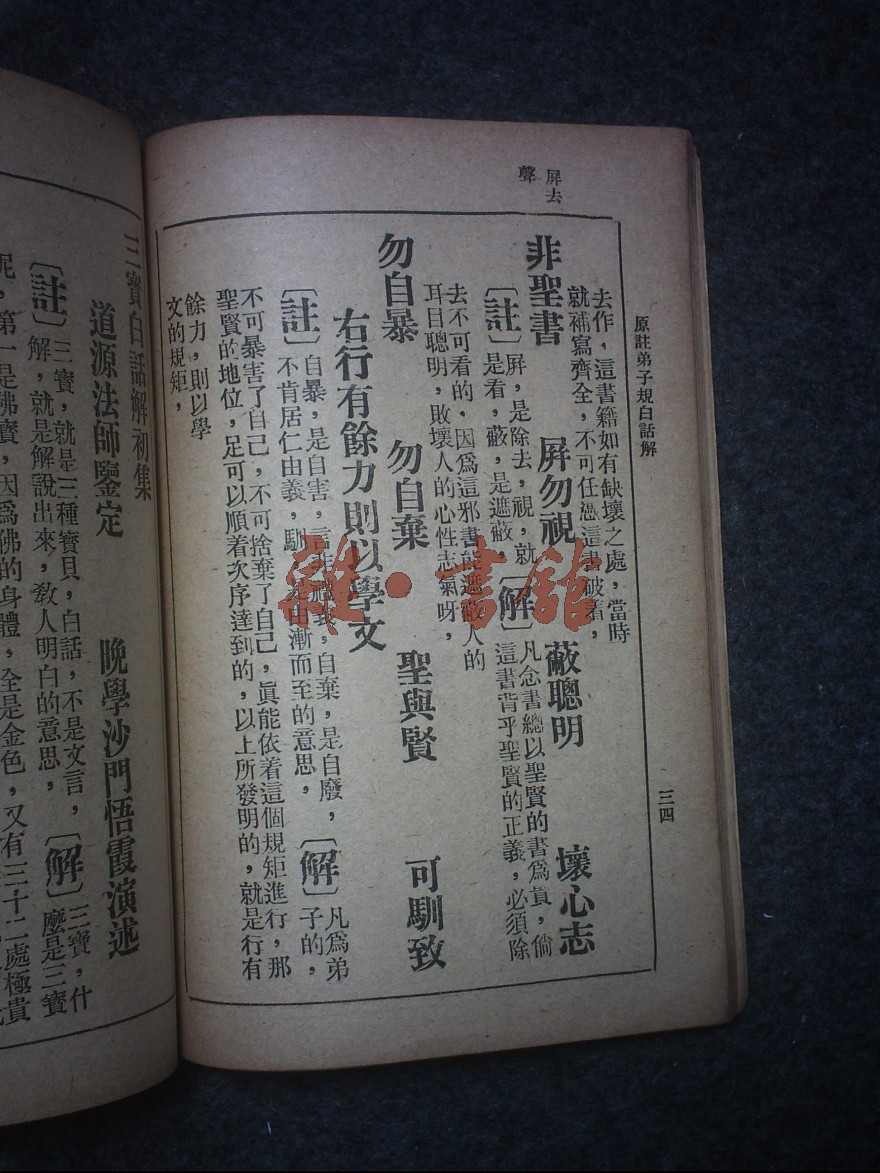 屛去
聲
原註弟子規白話解
三四
去作，這書籍如有缺壞之處，當時
就補寫齊全，不可任憑這書破着，
非聖書　屛勿視　蔽聰明　壞心志
〔註〕屛，是除去，視，就
是看，蔽，是遮蔽，
〔解〕凡念書總以聖賢的書爲貴，倘
這書背乎聖賢的正義，必須除
去不可看的，因爲這邪書能遮蔽人的
耳目聰明，敗壞人的心性志氣呀，
勿自暴　勿自棄　聖與賢　可馴致
右行有餘力則以學文
〔註〕自暴，是自害，言非禮義，自棄，是自廢，
不肯居仁由義，馴，是由漸而至的意思，
〔解〕凡爲弟
子的，
不可暴害了自己，不可捨棄了自己，眞能依着這個規矩進行，那
聖賢的地位，足可以順着次序達到的，以上所發明的，就是行有
餘力，則以學
文的規矩，
三寶白話解初集
道源法師鑒定　晚學沙門悟霞演述
〔註〕三寶，就是三種寶貝，白話，不是文言，
解，就是解說出來，敎人明白的意思，
〔解〕三寶，什
麼是三寶
呢，第一是佛寶，因爲佛的身體，全是金色，又有三十二處極貴
雜·書館